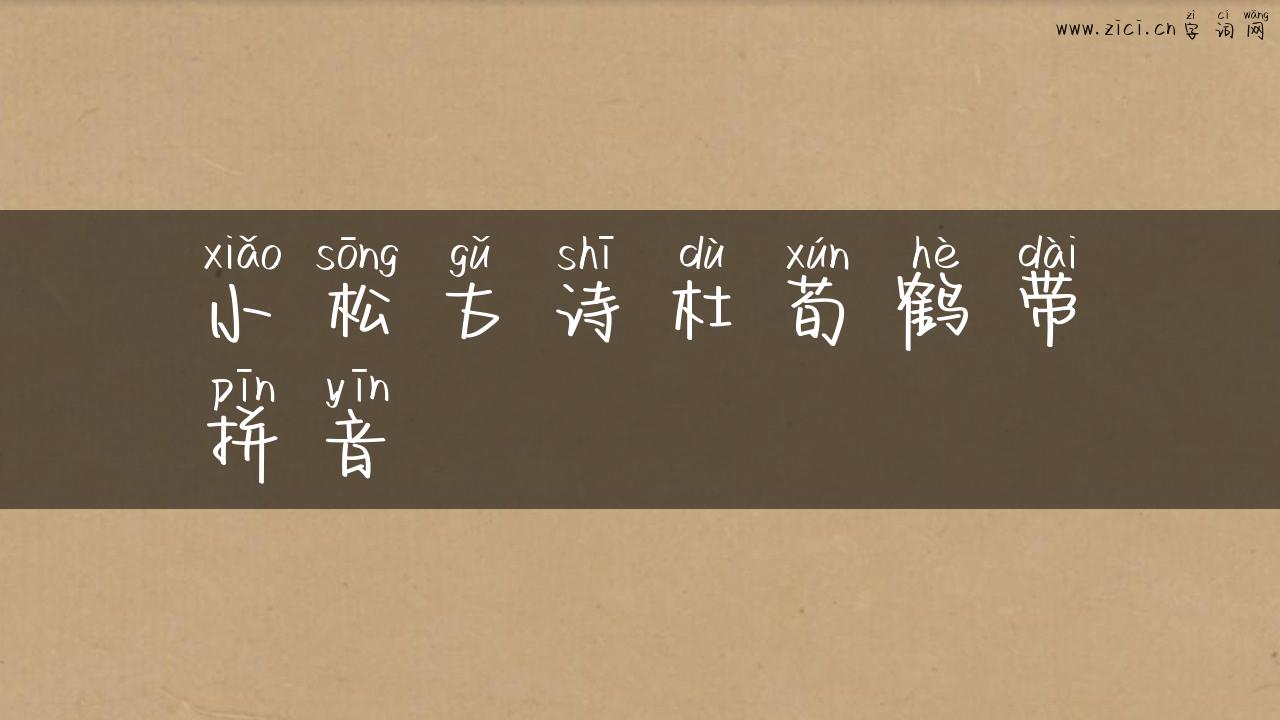 zì cí wǎng
www.zici.cn 字 词 网
xiǎo sōng gǔ shī dù xún hè dài
小 松 古 诗 杜 荀 鹤 带
pīn yīn
拼 音